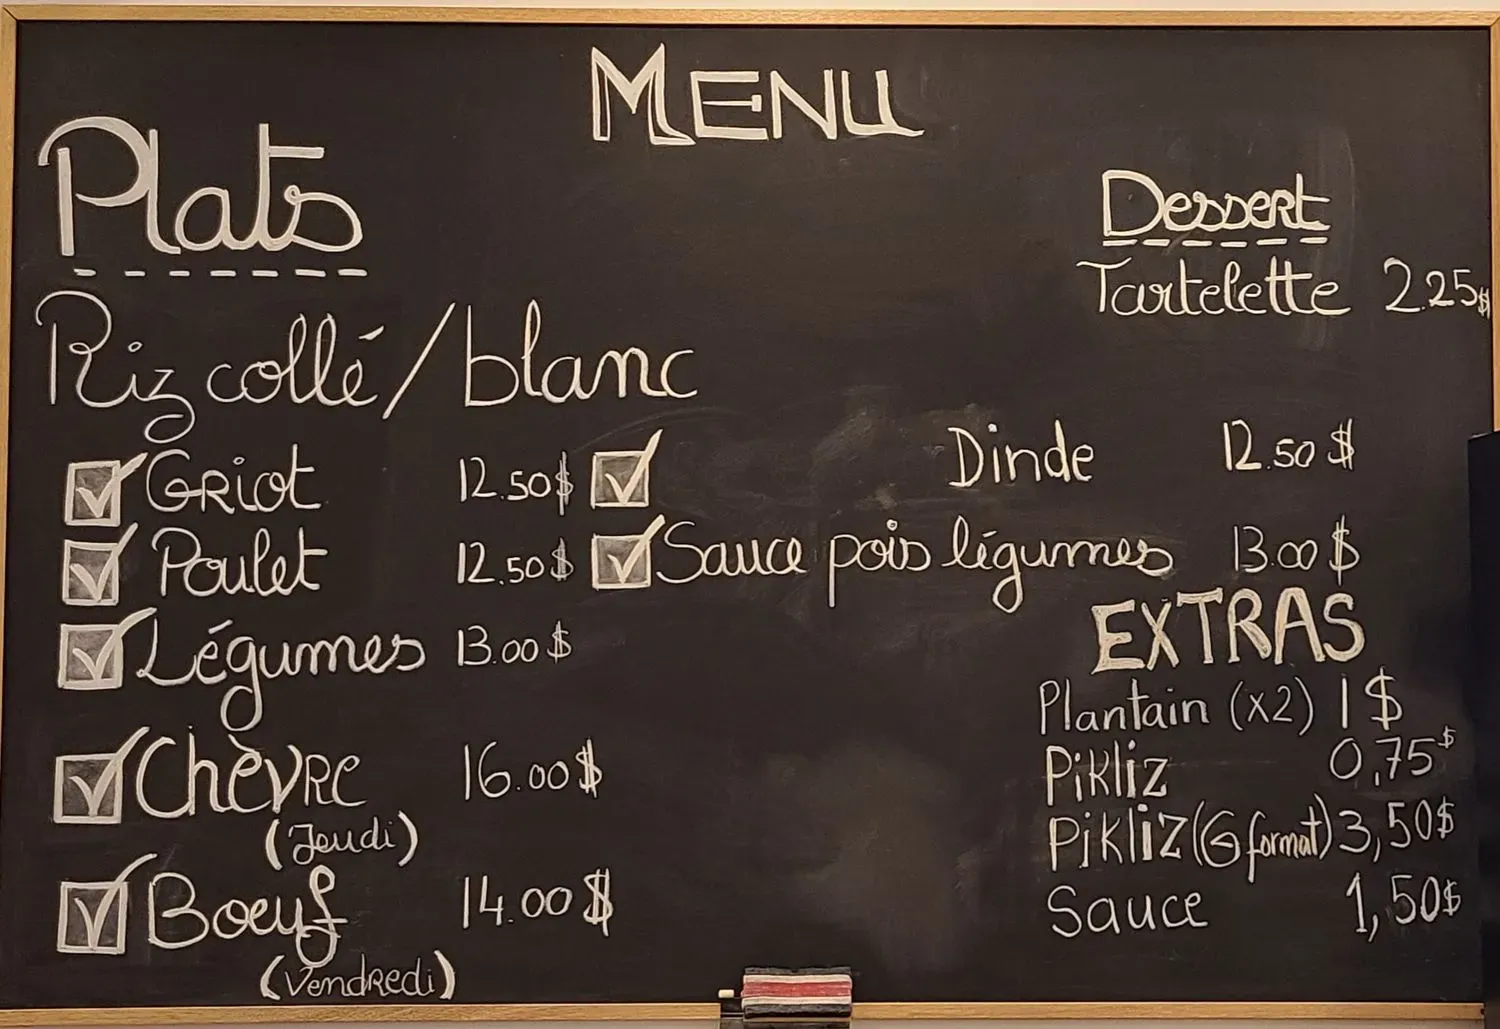 MENU
Plats
Riz collé/blanc
Griot 12.50$
Poulet 12.50$
Légumes 13.00$
Chèvre 16.00$
(Jeudi)
Boeuf 14.00$
(Vendredi)
Dinde 12.50$
Sauce pois légumes 13.00$
Dessert
Tartelette 2.25$
EXTRAS
Plantain (x2) 1$
Pikliz 0,75$
Pikliz (G format) 3,50$
Sauce 1,50$